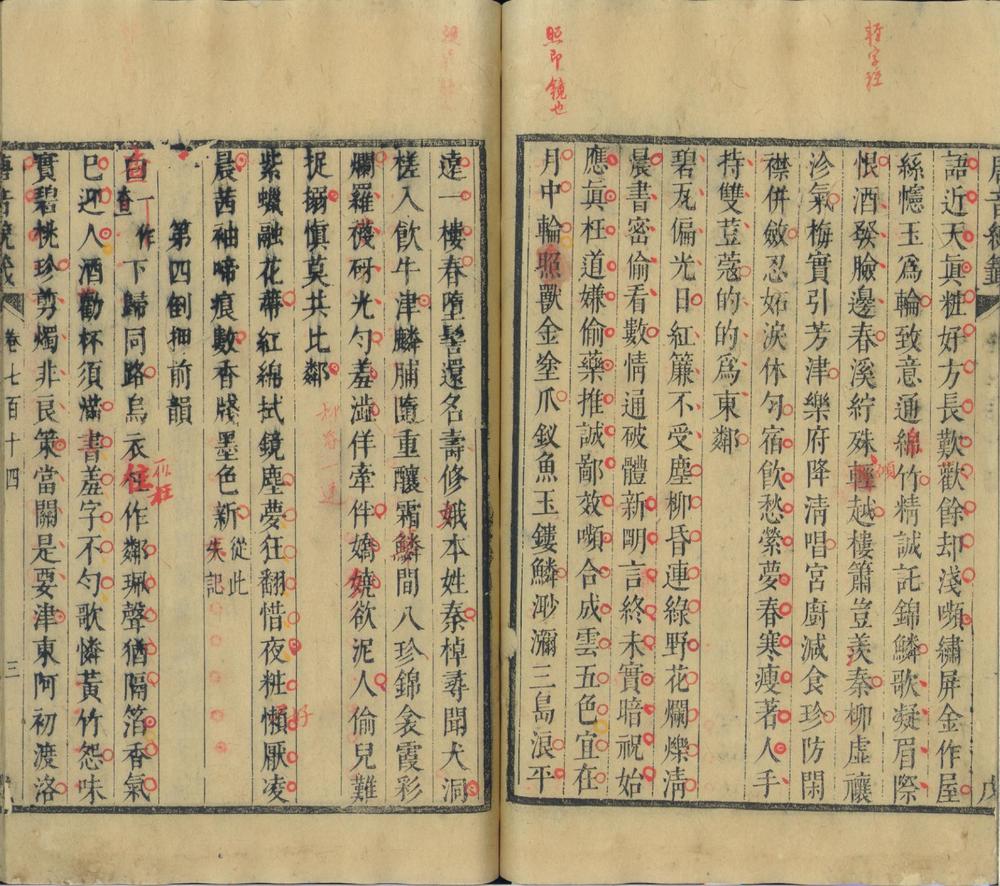 語近天眞粧好方長歎歡餘却淺嚬繡屏金作屋
絲幰玉爲輪致意通綿竹精誠託錦鱗歌凝眉際
恨酒發臉邊春溪紵殊輕越樓簫豈羡秦柳虛禳
沴氣梅實引芳津樂府降清唱宮廚減食珍防閑
襟併斂忍妬淚休匀宿飲愁縈夢春寒瘦著人手
持雙荳蔻的的爲東鄰
碧瓦偏光日紅簾不受塵柳昏連綠野花爛爍淸
晨書密偷看數情通破體新明言終未實暗祝始
應眞枉道嫌偷藥推誠鄙效嚬合成雲五色宜在
月中輪照獸金塗爪釵魚玉鏤鱗渺瀰三島浪平
遠一樓春墮髻還名壽修娥本姓秦棹尋聞犬洞
槎入飲牛津麟脯隨重釀霜鱗間八珍錦衾霞彩
爛羅襪砑光匀羞澁佯牽伴嬌嬈欲泥人偷兒難
捉搦愼莫共比鄰
紫蠟融花蔕紅綿拭鏡塵夢狂翻惜夜粧懶厭凌
晨茜袖啼痕數香牋墨色新從此失記
第四倒押前韻
白一作杳下歸同路烏衣枉作鄰珮聲猶隔箔香氣
已迎人酒勸杯須滿書羞字不匀歌憐黃竹怨味
實碧桃珍剪燭非良策當關是要津東阿初渡洛
卷七百十四
三
照即鏡也